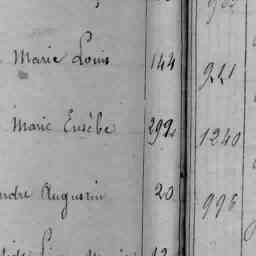 Marie Louis 144 221
Marie Eusèbe 292 1240
ndre Augustin 20 998